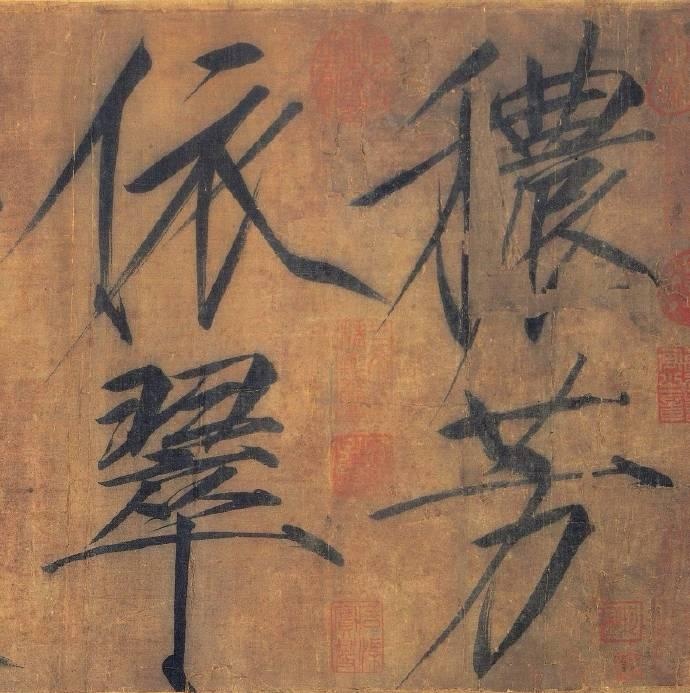 穠芳
依翠